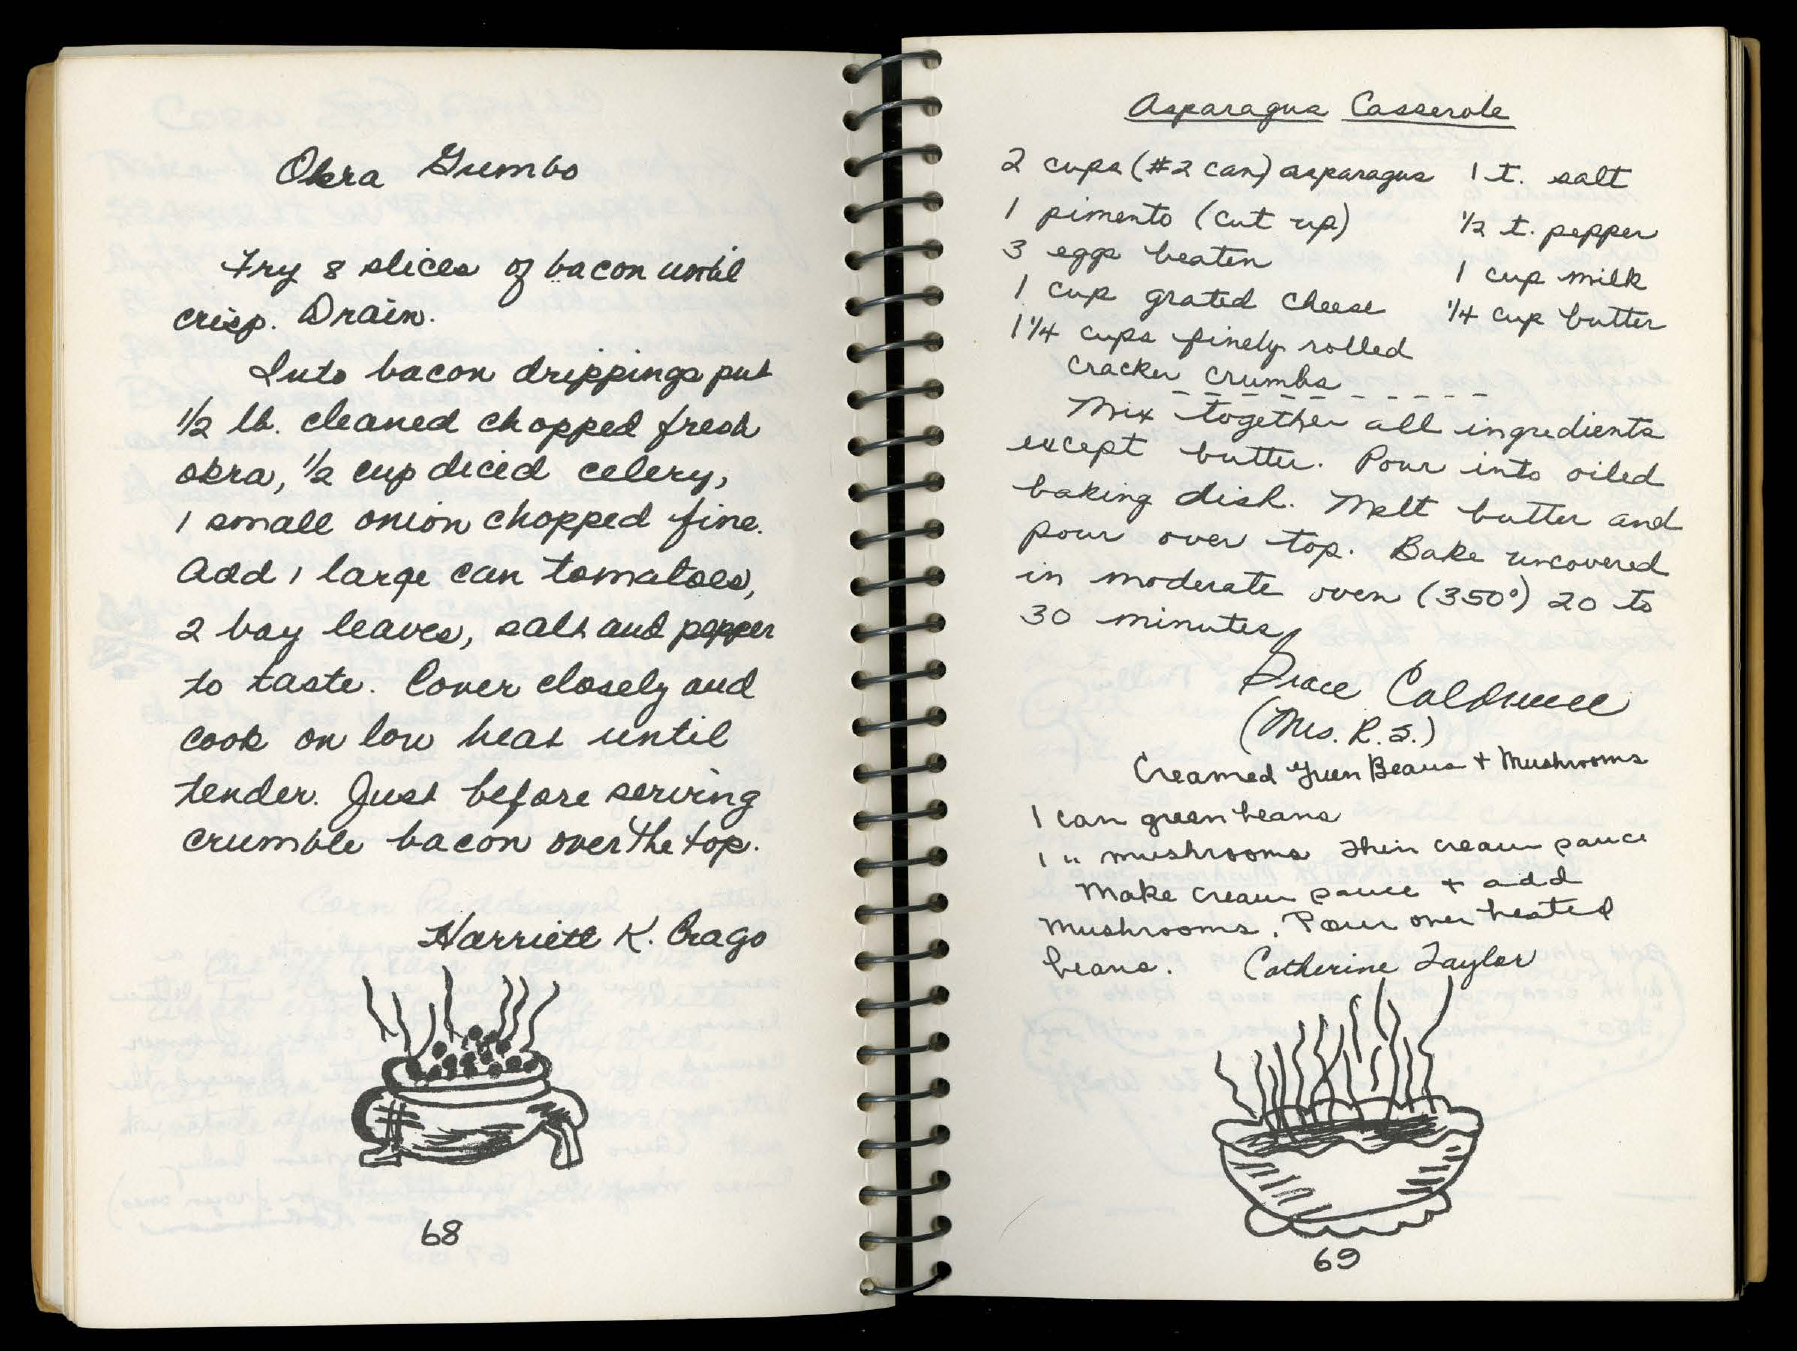 Okra Gumbo
Fry 8 slices of bacon until
crisp. Drain.
Into bacon drippings put
1/2 lb. cleaned chopped fresh
okra, 1/2 cup diced celery,
1 small onion chopped fine.
Add 1 large can tomatoes,
2 bay leaves, salt and pepper
to taste. Cover closely and
cook on low heat until
tender. Just before serving
crumble bacon over the top.
Harriett K. Crago
68
Asparagus Casserole
2 cups (#2 can) asparagus 1 t. salt
1 pimento (cut up) 1/2 t. pepper
3 eggs beaten 1 cup milk
1 cup grated cheese 1/4 cup butter
1 1/4 cups finely rolled
cracker crumbs
Mix together all ingredients
except butter. Pour into oiled
baking dish. Melt butter and
pour over top. Bake uncovered
in moderate oven (350°) 20 to
30 minutes.
Grace Caldwell
(Mrs. R. S.)
Creamed Green Beans + Mushrooms
1 can green beans
1 " mushrooms Thin cream sauce
Make cream sauce + add
mushrooms. Pour over heated
beans. Catherine Taylor
69